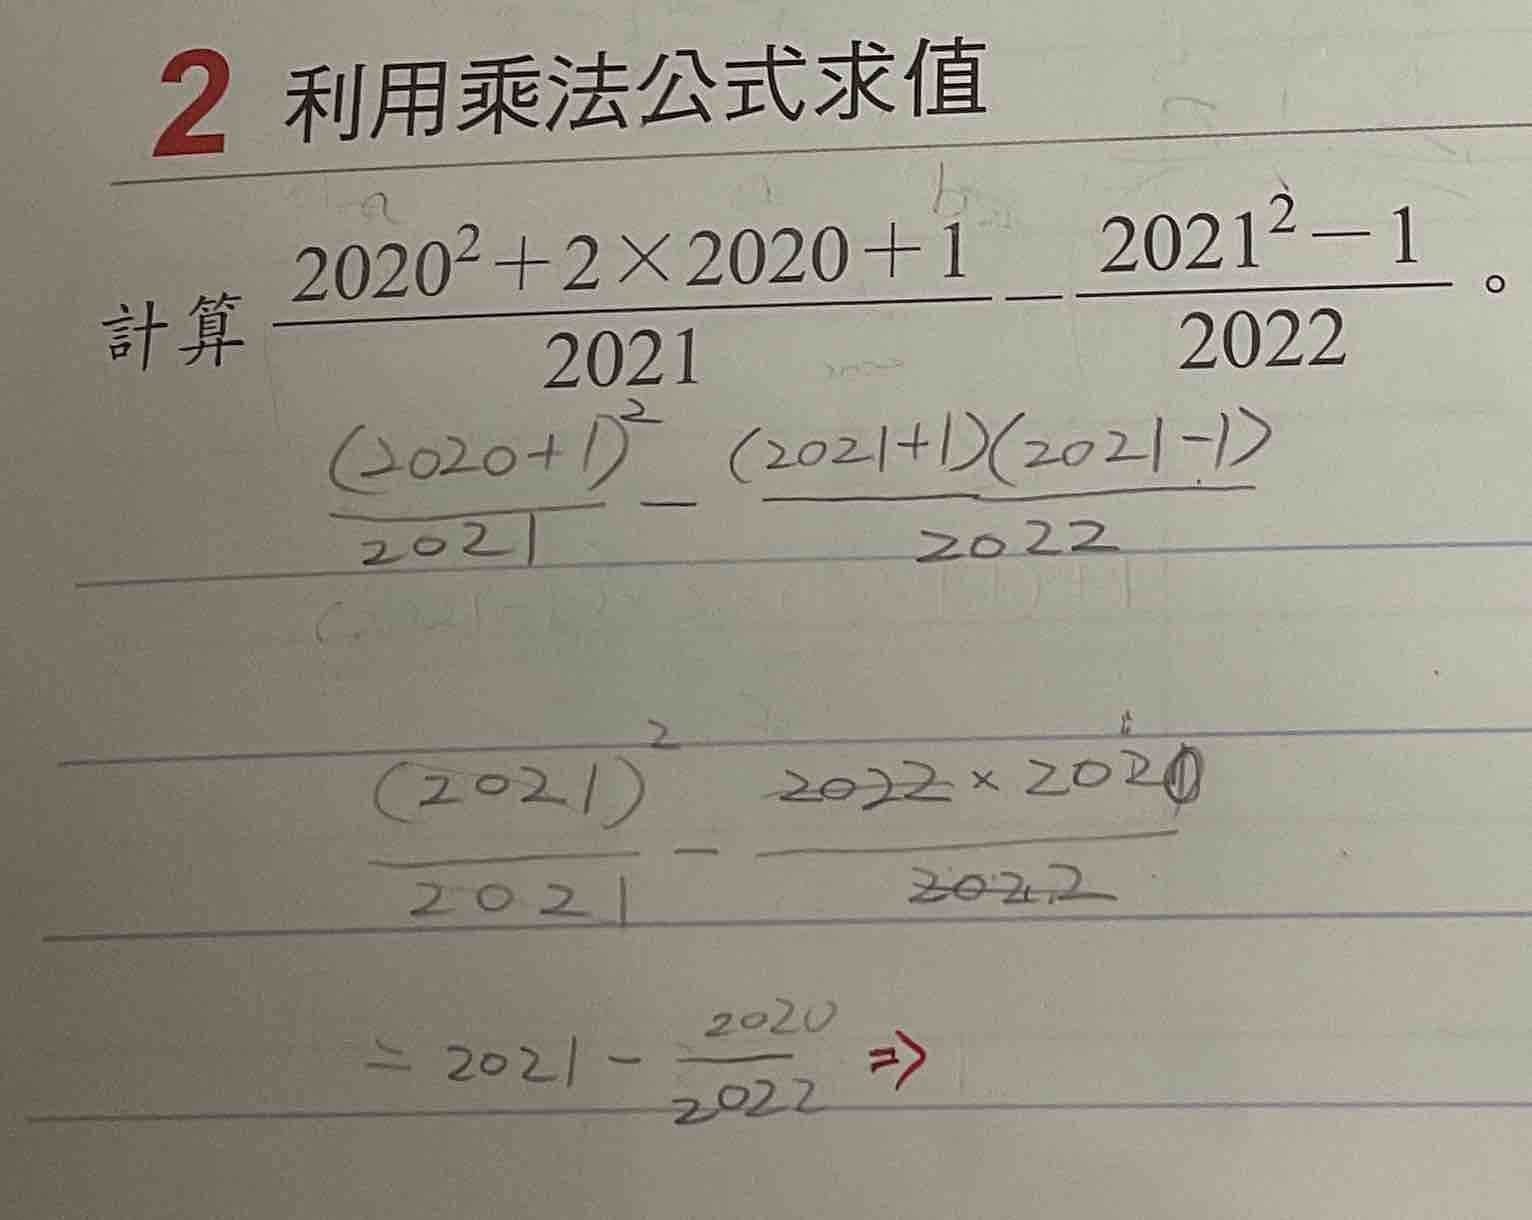 2 利用乘法公式求值
計算 (2020²+2×2020+1)/2021 − (2021²−1)/2022 。
(2020+1)²/2021 − (2021+1)(2021-1)/2022
(2021)²/2021 − 2022×2020/2022
= 2021 − 2020/2022 ⇒